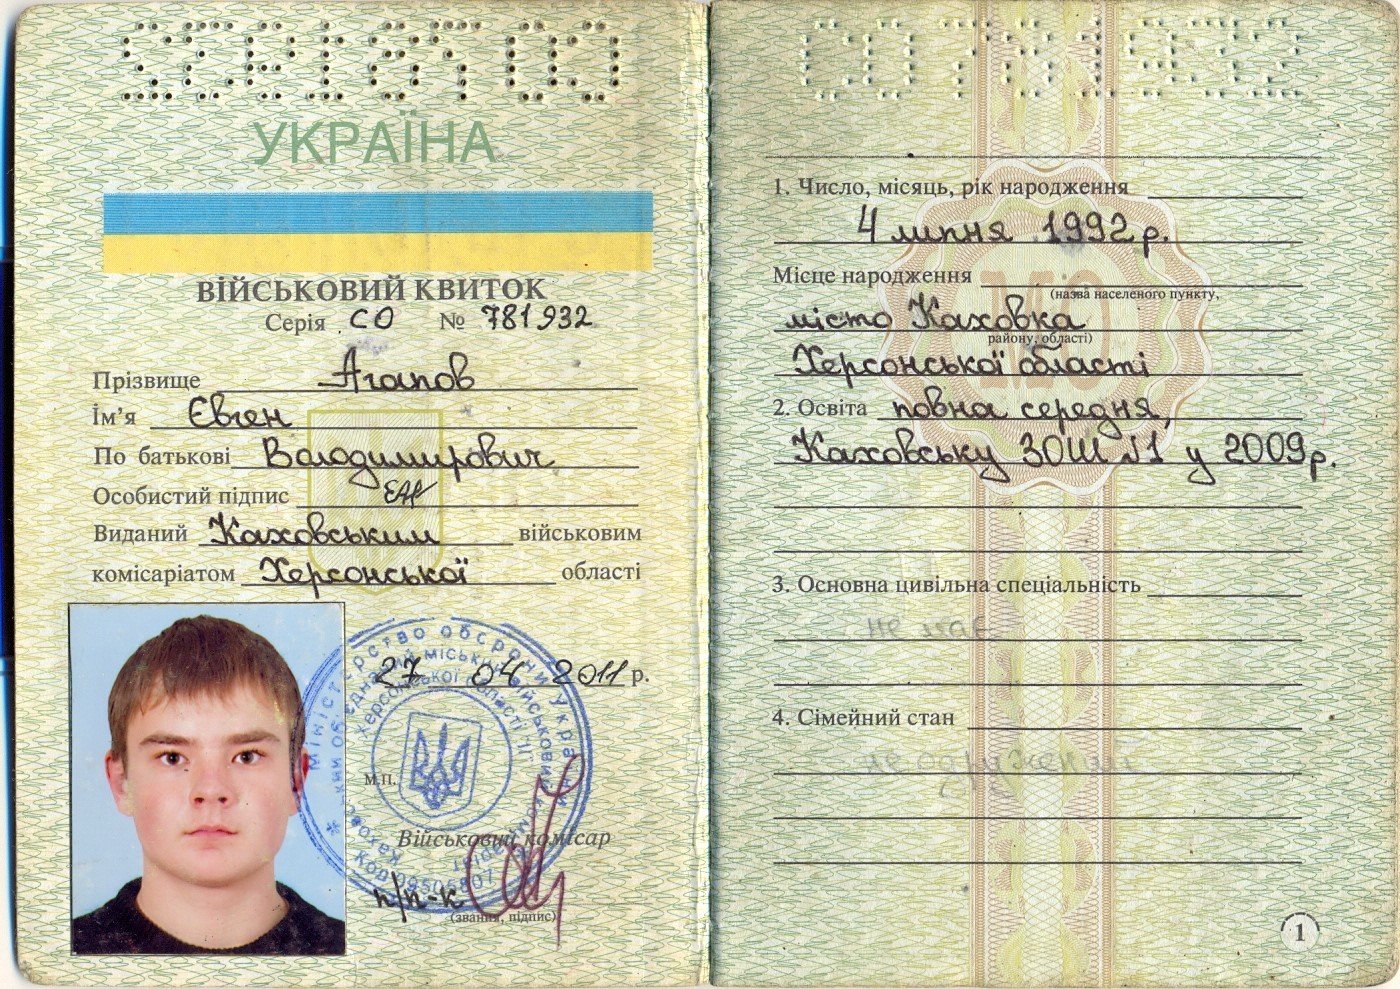 УКРАЇНА
ВІЙСЬКОВИЙ КВИТОК
Серія СО № 781932
Прізвище Агапов
Ім'я Євген
По батькові Володимирович
Особистий підпис
Виданий Каховським військовим
комісаріатом Херсонської області
27 04 2011 р.
М.П.
Військовий комісар
п/п-к
(звання, підпис)
Міністерство оборони України
Херсонської області
1. Число, місяць, рік народження
4 липня 1992 р.
Місце народження
(назва населеного пункту,
місто Каховка
району, області)
Херсонської області
2. Освіта повна середня
Каховську ЗОШ №1 у 2009 р.
3. Основна цивільна спеціальність
не має
4. Сімейний стан
не одружений
1